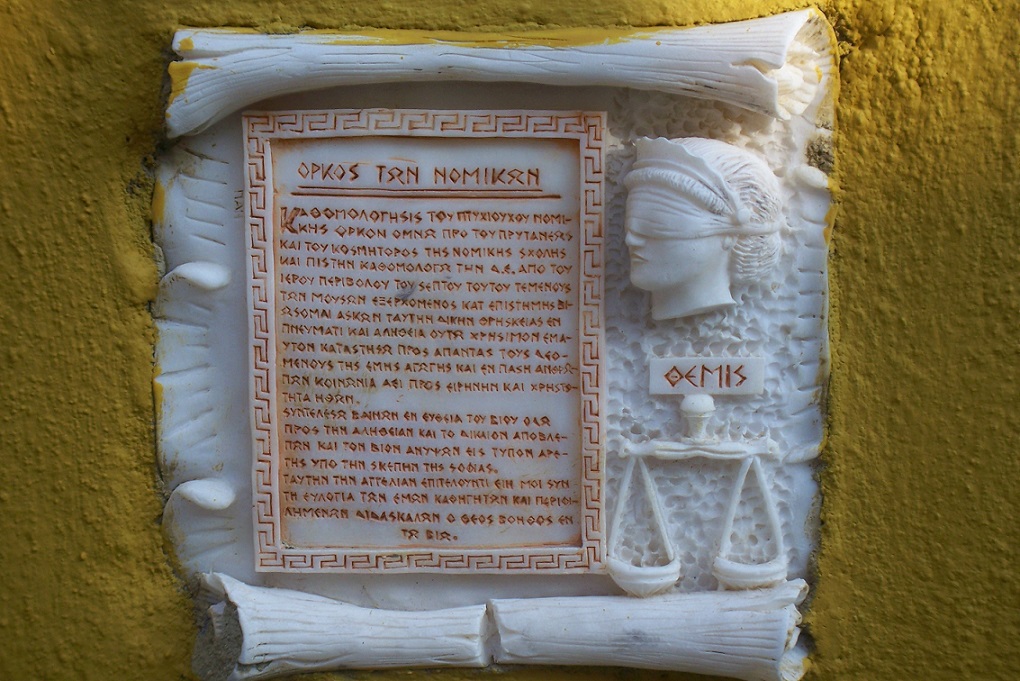 ΟΡΚΟΣ ΤΩΝ ΝΟΜΙΚΩΝ
ΚΑΘΟΜΟΛΟΓΗSIS ΤΟΥ ΠΤΥΧΙΟΥΧΟΥ ΝΟΜΙ-
ΚΗΣ ΟΡΚΟΝ ΟΜΝΩ ΠΡΟ ΤΟΥ ΠΡΥΤΑΝΕΩΣ
ΚΑΙ ΤΟΥ ΚΟSΜΗΤΟΡΟΣ ΤΗΣ ΝΟΜΙΚΗΣ SΧΟΛΗΣ
ΚΑΙ ΠΙSΤΗΝ ΚΑΘΟΜΟΛΟΓΩ ΤΗΝ Δ.Ε. ΑΠΟ ΤΟΥ
ΙΕΡΟΥ ΠΕΡΙΒΟΛΟΥ ΤΟΥ SΕΠΤΟΥ ΤΟΥΤΟΥ ΤΕΜΕΝΟΥS
ΤΩΝ ΜΟΥSΩΝ ΕΞΕΡΧΟΜΕΝΟS ΚΑΤ ΕΠΙSΤΗΜΗΝ ΒΙ-
ΩSΟΜΑΙ ΑSΚΩΝ ΤΑΥΤΗΝ ΔΙΚΗΝ ΘΡΗSΚΕΙΑS ΕΝ
ΠΝΕΥΜΑΤΙ ΚΑΙ ΑΛΗΘΕΙΑ ΟΥΤΩ ΧΡΗSΙΜΟΝ ΕΜΑ-
ΥΤΟΝ ΚΑΤΑSΤΗSΩ ΠΡΟS ΑΠΑΝΤΑS ΤΟΥS ΔΕΟ-
ΜΕΝΟΥS ΤΗS ΕΜΗS ΑΓΩΓΗS ΚΑΙ ΕΝ ΠΑSΗ ΑΝΘΡΩ-
ΠΩΝ ΚΟΙΝΩΝΙΑ ΑΕΙ ΠΡΟS ΕΙΡΗΝΗΝ ΚΑΙ ΧΡΗSΤΟ-
ΤΗΤΑ ΗΘΩΝ.
SΥΝΤΕΛΕSΩ ΒΑΙΝΩΝ ΕΝ ΕΥΘΕΙΑ ΤΟΥ ΒΙΟΥ ΟΔΩ
ΠΡΟS ΤΗΝ ΑΛΗΘΕΙΑΝ ΚΑΙ ΤΟ ΔΙΚΑΙΟΝ ΑΠΟΒΛΕ-
ΠΩΝ ΚΑΙ ΤΟΝ ΒΙΟΝ ΑΝΥΨΩΝ ΕΙS ΤΥΠΟΝ ΑΡΕ-
ΤΗS ΥΠΟ ΤΗΝ SΚΕΠΗΝ ΤΗS SΟΦΙΑS.
ΤΑΥΤΗΝ ΤΗΝ ΑΓΓΕΛΙΑΝ ΕΠΙΤΕΛΟΥΝΤΙ ΕΙΗ ΜΟΙ SΥΝ
ΤΗ ΕΥΛΟΓΙΑ ΤΩΝ ΕΜΩΝ ΚΑΘΗΓΗΤΩΝ ΚΑΙ
ΔΙΔΑSΚΑΛΩΝ Ο ΘΕΟS ΒΟΗΘΟS ΕΝ
ΤΩ ΒΙΩ.
ΘΕΜΙS